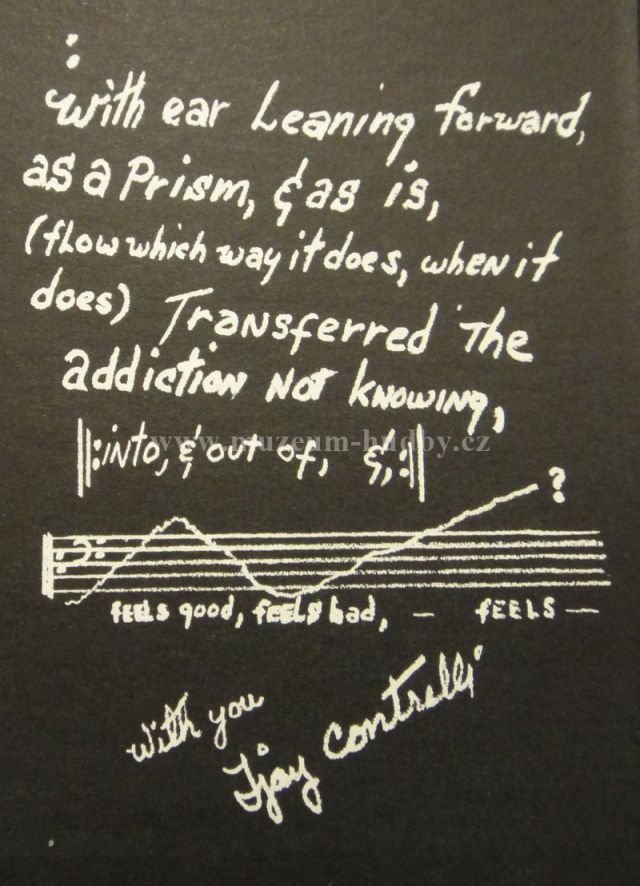 :
with ear Leaning forward,
as a Prism, & as is,
(flow which way it does, when it
does) Transferred The
addiction Not knowing,
‖:into, & out of, &,:‖
www.muzeum-hudby.cz
?
feels good, feels bad, — feels —
with you
Tjay Contrelli